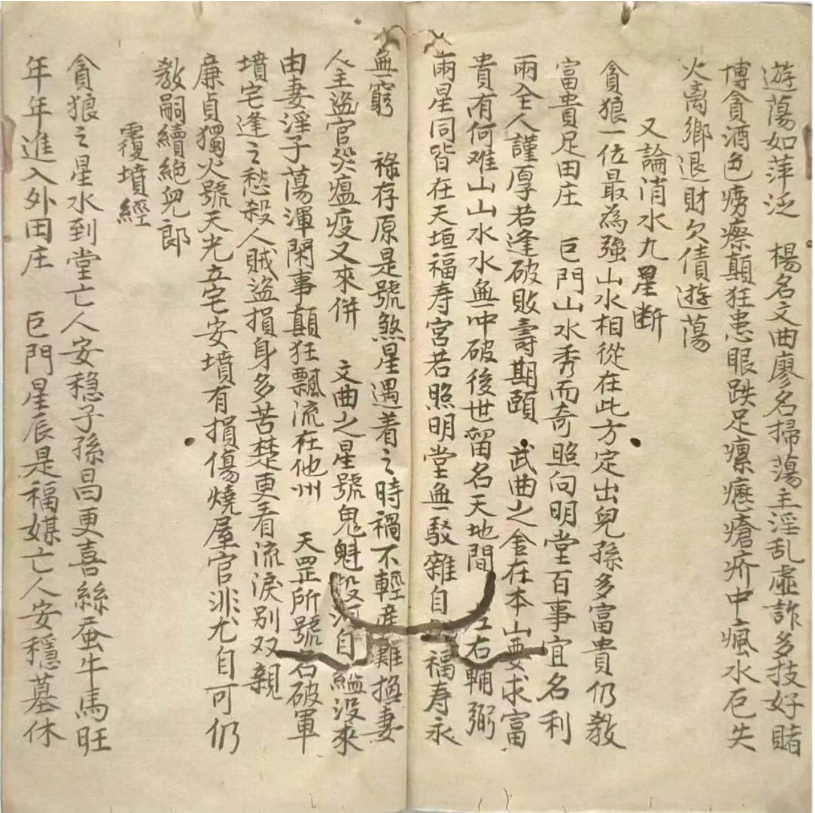 遊蕩如萍泛　楊名文曲廖名掃蕩主淫乱虛詐多技好賭
博貪酒色癆瘵顛狂患眼跌足瘰癧瘡疥中瘋水厄失
火离鄉退財欠債遊蕩
又論消水九星断
貪狼一位最為強山水相從在此方定出兒孫多富貴仍教
富貴足田庄　巨門山水秀而奇照向明堂百事宜名利
兩全人謹厚若逢破敗壽期頤　武曲之金在本山要求富
貴有何难山山水水無冲破後世留名天地間　左右輔弼
兩星同皆在天垣福寿宮若照明堂無駁雜自福寿永
無窮　祿存原是號煞星遇着之時禍不輕産難換妻
人主盜官災瘟疫又來併　文曲之星號鬼魁投河自縊沒來
由妻淫子蕩渾閑事顛狂飄流在他州　天罡所號名破軍
墳宅逢之愁殺人賊盜損身多苦楚更看流淚別双親
廉貞獨火號天光立宅安墳有損傷燒屋官非尤自可仍
教嗣續絕兒郎
覆墳經
貪狼之星水到堂亡人安穏子孫昌更喜絲蚕牛馬旺
年年進入外田庄　巨門星辰是福媒亡人安穩墓休